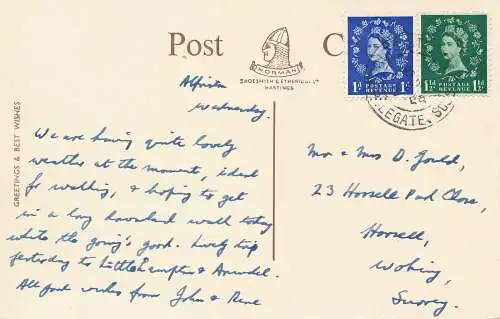 Post C
NORMAN
SHOESMITH & ETHERIDGE LTD
HASTINGS
GREETINGS & BEST WISHES
1D POSTAGE REVENUE 1D
1½D POSTAGE REVENUE 1½D
Wednesday.
We are having quite lovely
weather at the moment, ideal
for walking, & hoping to get
in a long downland walk today
while the going's good. Lovely trip
yesterday to Littlehampton & Arundel.
All good wishes from John & Rene
Mr & Mrs D. Gould,
23 Horsell Park Close,
Horsell,
Woking,
Surrey.